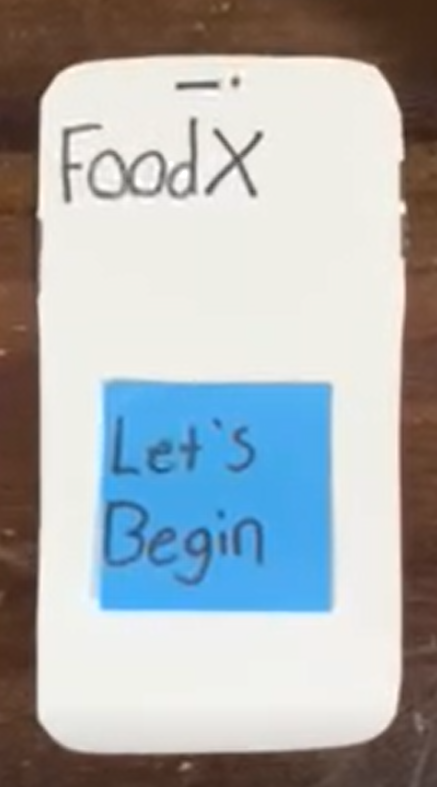 FoodX
Let's
Begin